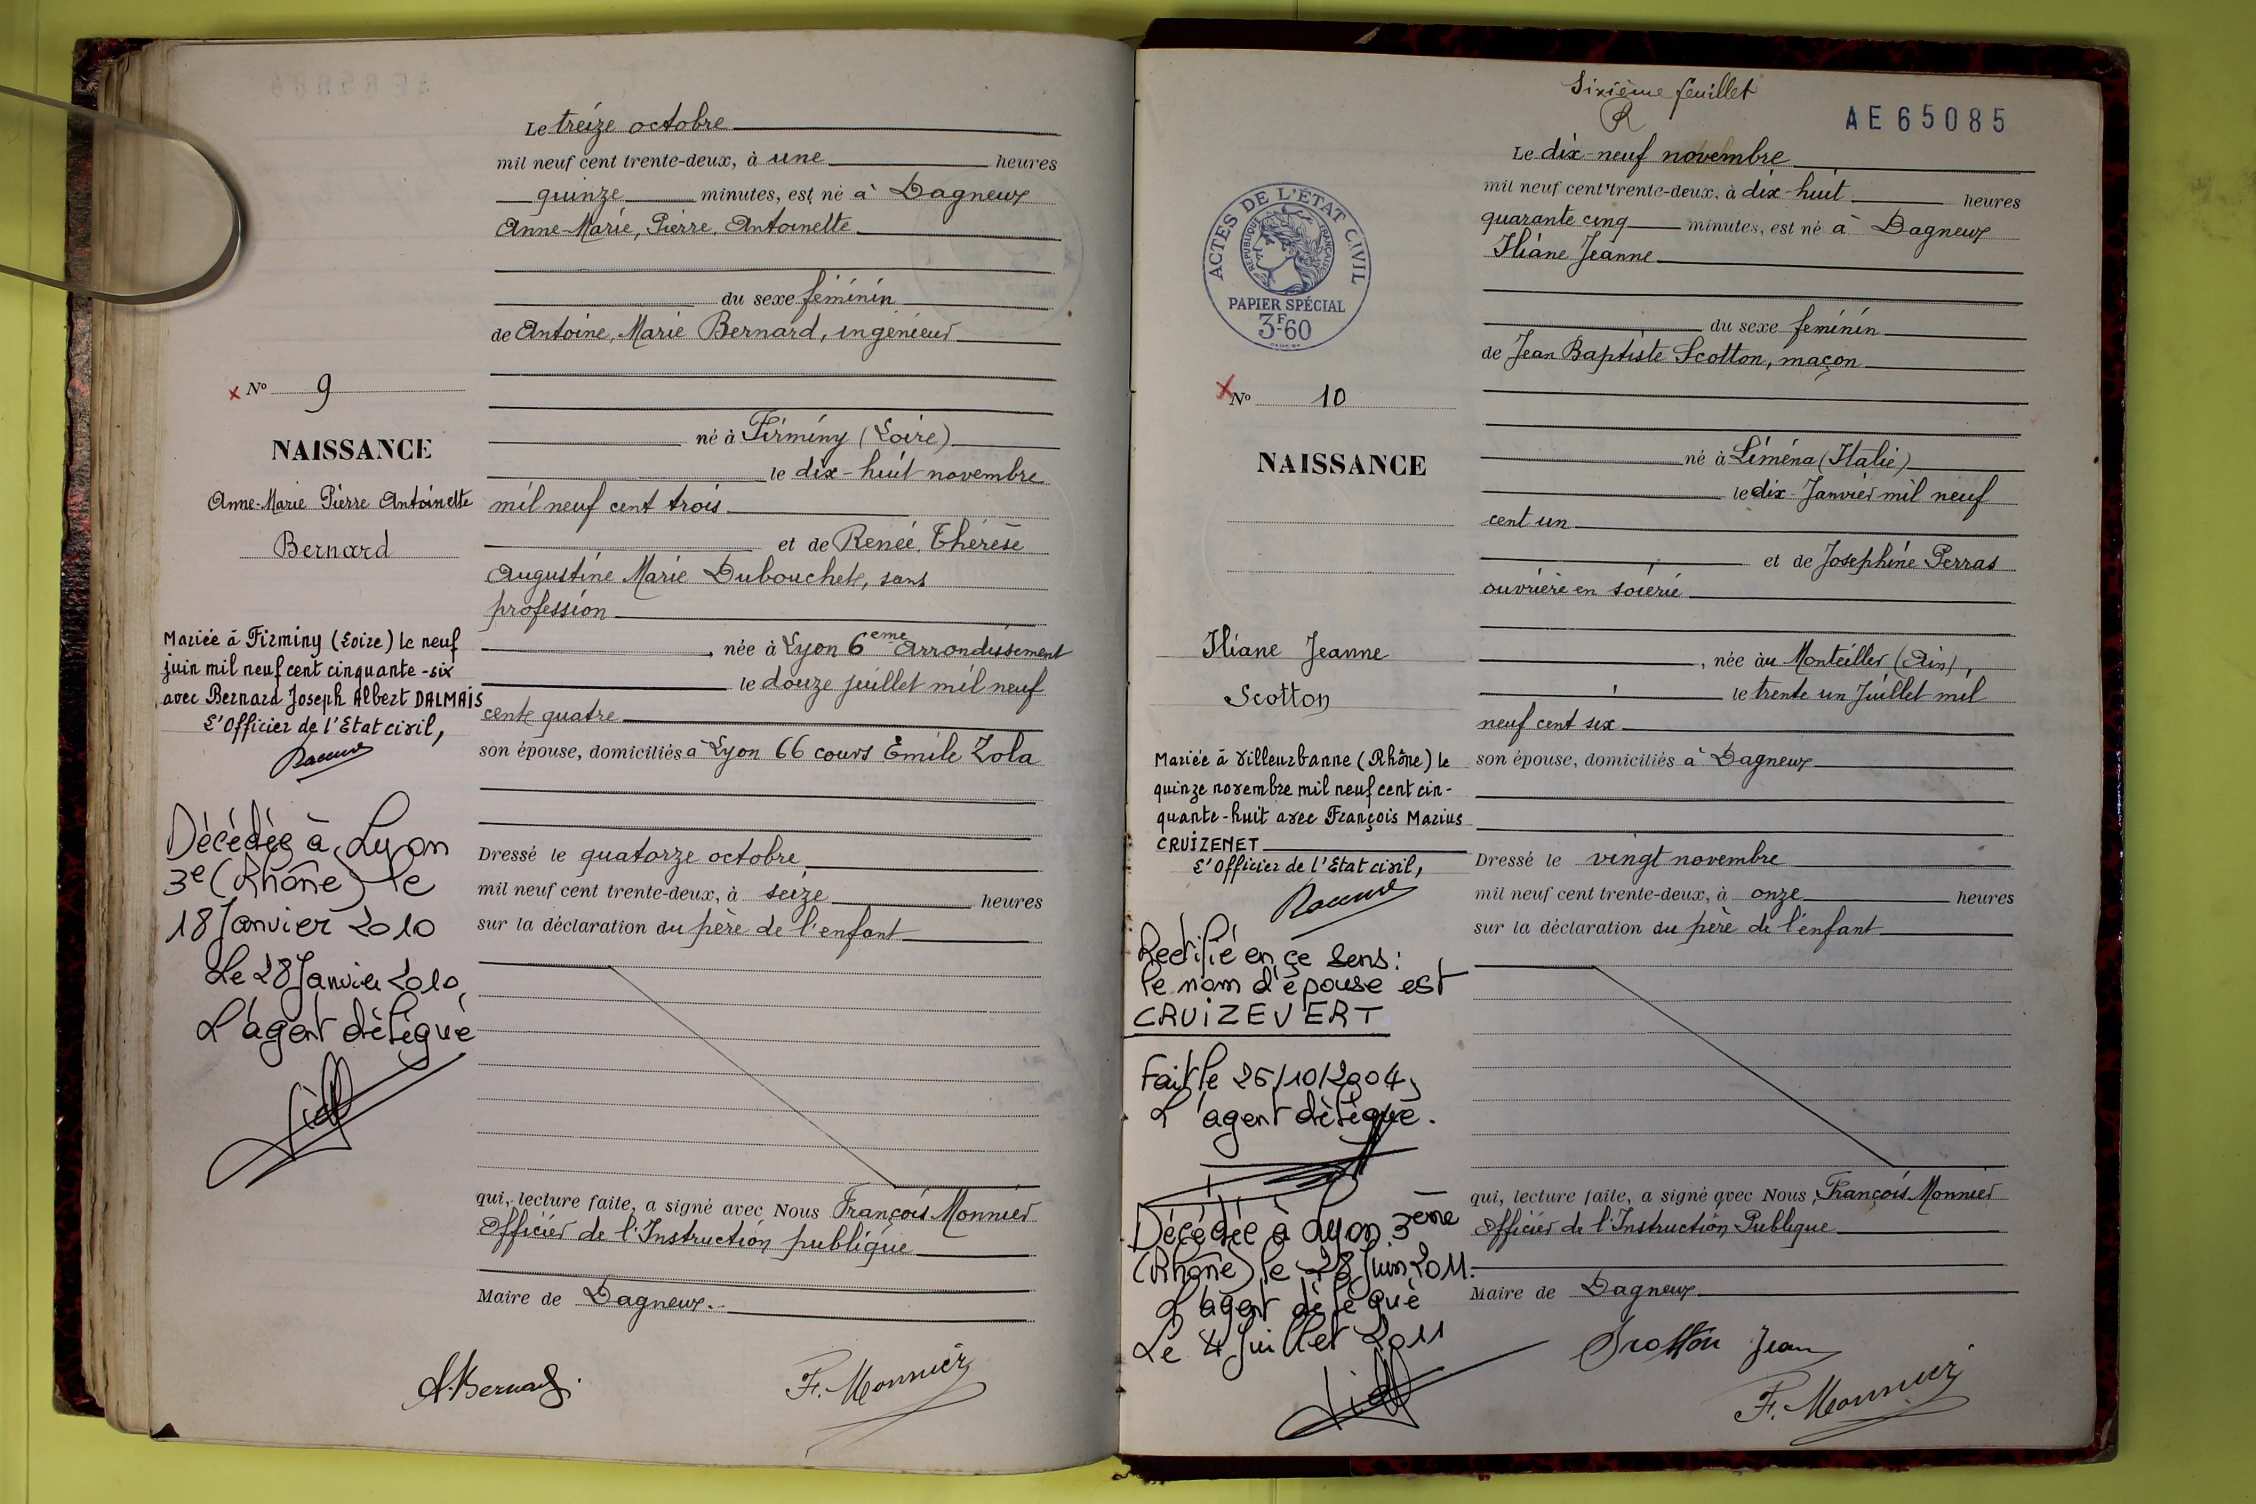 Le treize octobre
mil neuf cent trente-deux, à une heures
quinze minutes, est né à Dagneux
Anne-Marie, Pierre, Antoinette
du sexe féminin
de Antoine, Marie Bernard, ingénieur
× Nº 9
né à Firminy (Loire)
NAISSANCE
le dix-huit novembre
Anne-Marie Pierre Antoinette
mil neuf cent trois
Bernard
et de Renée, Thérèse
Augustine Marie Dubouchet, sans
profession
Mariée à Firminy (Loire) le neuf
juin mil neuf cent cinquante-six
avec Bernard Joseph Albert DALMAIS
L'Officier de l'Etat civil,
, née à Lyon 6eme Arrondissement
le douze juillet mil neuf
cent quatre
son épouse, domiciliés à Lyon 66 cours Emile Zola
Décédée à Lyon
3e (Rhône) le
18 Janvier 2010
Le 28 Janvier 2010
L'agent délégué
Dressé le quatorze octobre
mil neuf cent trente-deux, à seize heures
sur la déclaration du père de l'enfant
qui, lecture faite, a signé avec Nous François Monnier
Officier de l'Instruction publique
Maire de Dagneux.
A. Bernard.
F. Monnier
Sixième feuillet
R
AE 65085
Le dix-neuf novembre
mil neuf cent trente-deux, à dix-huit heures
quarante cinq minutes, est né à Dagneux
Iliane Jeanne
ACTES DE L'ÉTAT CIVIL
RÉPUBLIQUE FRANÇAISE
PAPIER SPÉCIAL
3F60
du sexe féminin
de Jean Baptiste Scotton, maçon
× Nº 10
né à Liména (Italie)
NAISSANCE
le dix Janvier mil neuf
cent un
et de Joséphine Perras
ouvrière en soierie
Iliane Jeanne
Scotton
, née au Montellier (Ain),
le trente un Juillet mil
neuf cent six
son épouse, domiciliés à Dagneux
Mariée à Villeurbanne (Rhône) le
quinze novembre mil neuf cent cin-
quante-huit avec François Marius
CRUIZENET
L'Officier de l'Etat civil,
Rectifié en ce sens:
le nom d'épouse est
CRUIZEVERT
Fait le 26/10/2004,
L'agent délégué.
Décédée à Lyon 3ème
(Rhône) le 28 Juin 2011.
L'agent délégué
Le 4 Juillet 2011
Dressé le vingt novembre
mil neuf cent trente-deux, à onze heures
sur la déclaration du père de l'enfant
qui, lecture faite, a signé avec Nous, François Monnier
Officier de l'Instruction Publique
Maire de Dagneux
Scotton Jean
F. Monnier